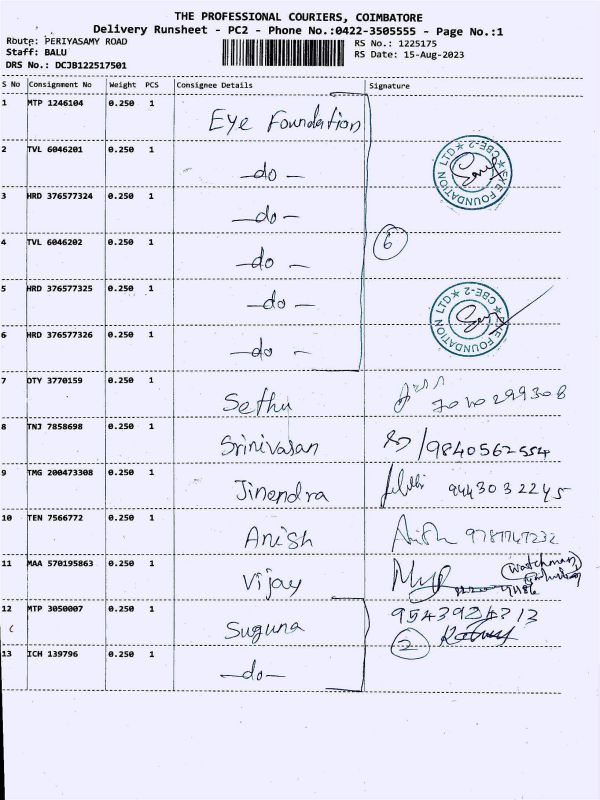 THE PROFESSIONAL COURIERS, COIMBATORE
Delivery Runsheet - PC2 - Phone No.:0422-3505555 - Page No.:1
Route: PERIYASAMY ROAD
RS No.: 1225175
Staff: BALU
RS Date: 15-Aug-2023
DRS No.: DCJB122517501
S No Consignment No Weight PCS Consignee Details Signature
1 MTP 1246104 0.250 1 Eye Foundation
2 TVL 6046201 0.250 1 -do-
EYE FOUNDATION LTD ★ CBE-2 ★
3 HRD 376577324 0.250 1 -do-
4 TVL 6046202 0.250 1 -do- 6
5 HRD 376577325 0.250 1 -do-
EYE FOUNDATION LTD ★ CBE-2 ★
6 HRD 376577326 0.250 1 -do-
7 OTY 3770159 0.250 1 Sethu
8 TNJ 7858698 0.250 1 Srinivasan /9840562554
9 TMG 200473308 0.250 1 Jinendra 9443032245
10 TEN 7566772 0.250 1 Anish Anish
11 MAA 570195863 0.250 1 Vijay (watchman)
12 MTP 3050007 0.250 1 Suguna
2
13 ICH 139796 0.250 1 -do-